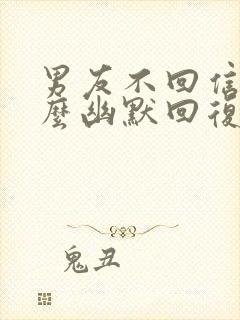 男友不回信
麼幽默回復
鬼丑